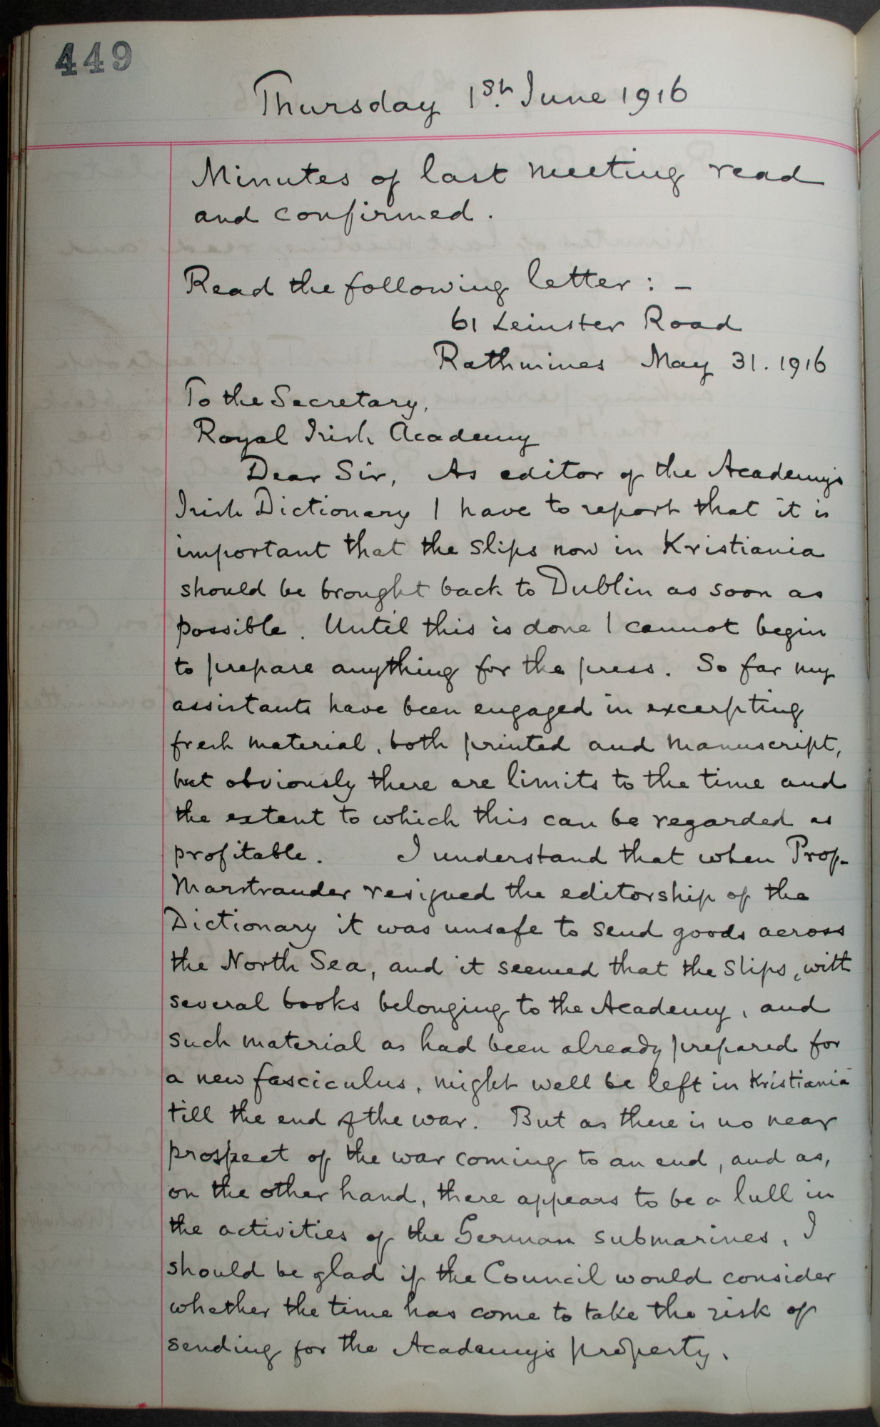 449
Thursday 1st. June 1916
Minutes of last meeting read
and confirmed.
Read the following letter: -
61 Leinster Road
Rathmines May 31. 1916
To the Secretary,
Royal Irish Academy
Dear Sir, As editor of the Academy's
Irish Dictionary I have to report that it is
important that the slips now in Kristiania
should be brought back to Dublin as soon as
possible. Until this is done I cannot begin
to prepare anything for the press. So far my
assistants have been engaged in excerpting
fresh material, both printed and manuscript,
but obviously there are limits to the time and
the extent to which this can be regarded as
profitable. I understand that when Prof.
Marstrander resigned the editorship of the
Dictionary it was unsafe to send goods across
the North Sea, and it seemed that the slips, with
several books belonging to the Academy, and
such material as had been already prepared for
a new fasciculus, might well be left in Kristiania
till the end of the war. But as there is no near
prospect of the war coming to an end, and as,
on the other hand, there appears to be a lull in
the activities of the German submarines, I
should be glad if the Council would consider
whether the time has come to take the risk of
sending for the Academy's property.